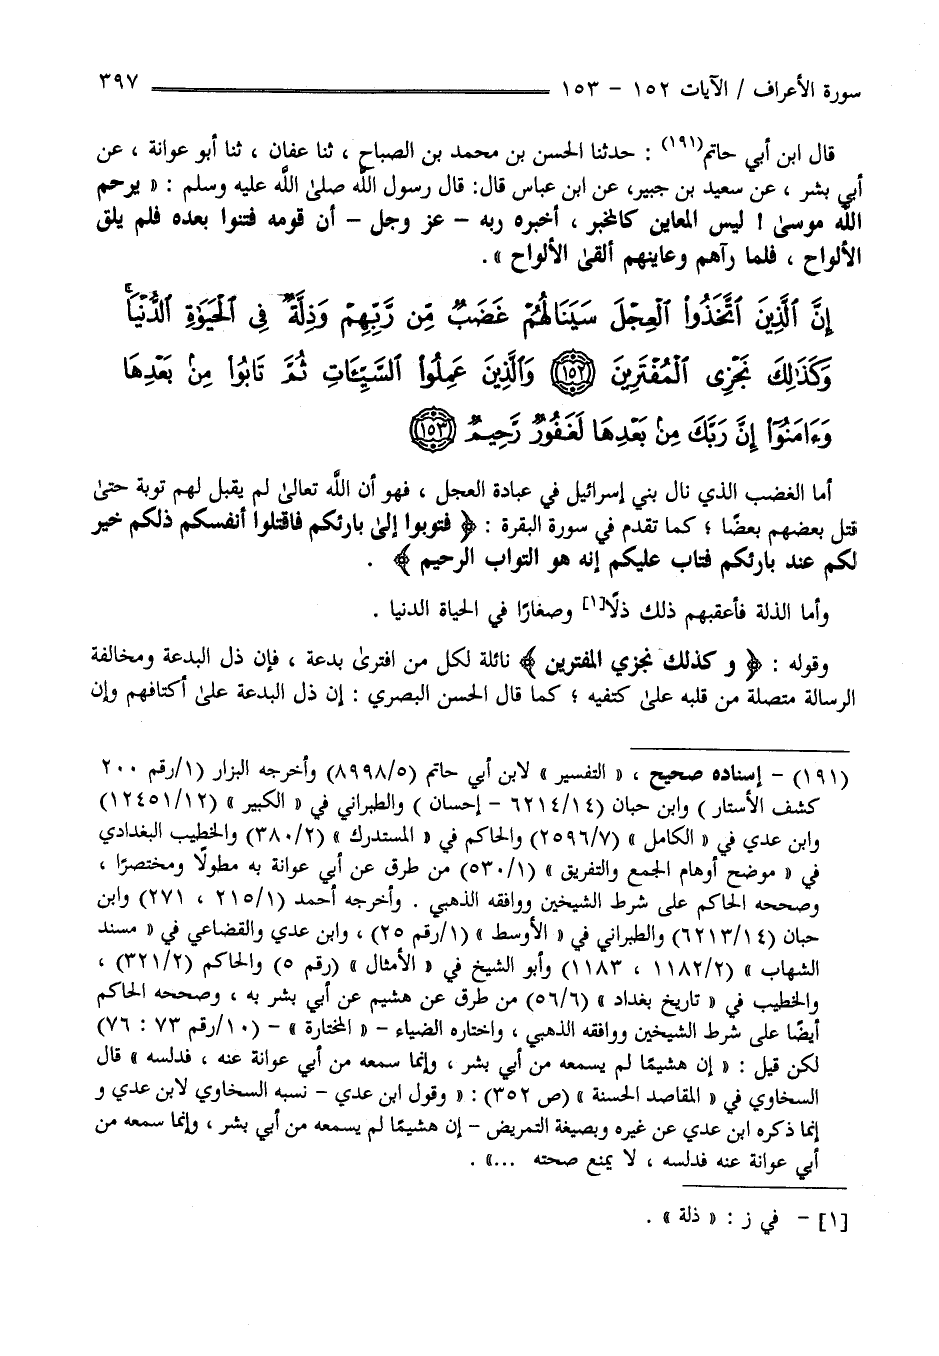 سورة الأعراف / الآيات ١٥٢ - ١٥٣ ٣٩٧
قال ابن أبي حاتم(١٩١) : حدثنا الحسن بن محمد بن الصباح ، ثنا عفان ، ثنا أبو عوانة ، عن
أبي بشر ، عن سعيد بن جبير، عن ابن عباس قال: قال رسول اللَّه صلىٰ اللَّه عليه وسلم : « يرحم
اللَّه موسىٰ ! ليس المعاين كالمخبر ، أخبره ربه - عز وجل - أن قومه فتنوا بعده فلم يلق
الألواح ، فلما رآهم وعاينهم ألقىٰ الألواح ».
إِنَّ ٱلَّذِينَ ٱتَّخَذُوا۟ ٱلْعِجْلَ سَيَنَالُهُمْ غَضَبٌ مِّن رَّبِّهِمْ وَذِلَّةٌ فِى ٱلْحَيَوٰةِ ٱلدُّنْيَا ۚ
وَكَذَٰلِكَ نَجْزِى ٱلْمُفْتَرِينَ ١٥٢ وَٱلَّذِينَ عَمِلُوا۟ ٱلسَّيِّـَٔاتِ ثُمَّ تَابُوا۟ مِنۢ بَعْدِهَا
وَءَامَنُوٓا۟ إِنَّ رَبَّكَ مِنۢ بَعْدِهَا لَغَفُورٌ رَّحِيمٌ ١٥٣
أما الغضب الذي نال بني إسرائيل في عبادة العجل ، فهو أن اللَّه تعالىٰ لم يقبل لهم توبة حتىٰ
قتل بعضهم بعضًا ؛ كما تقدم في سورة البقرة : ﴿ فتوبوا إلىٰ بارئكم فاقتلوا أنفسكم ذلكم خير
لكم عند بارئكم فتاب عليكم إنه هو التواب الرحيم ﴾ .
وأما الذلة فأعقبهم ذلك ذلًا[١] وصغارًا في الحياة الدنيا .
وقوله : ﴿ و كذلك نجزي المفترين ﴾ نائلة لكل من افترىٰ بدعة ، فإن ذل البدعة ومخالفة
الرسالة متصلة من قلبه علىٰ كتفيه ؛ كما قال الحسن البصري : إن ذل البدعة علىٰ أكتافهم وإن
(١٩١) - إسناده صحيح ، « التفسير » لابن أبي حاتم (٨٩٩٨/٥) وأخرجه البزار (١/رقم ٢٠٠
كشف الأستار ) وابن حبان (٦٢١٤/١٤ - إحسان ) والطبراني في « الكبير » (١٢٤٥١/١٢)
وابن عدي في « الكامل » (٢٥٩٦/٧) والحاكم في « المستدرك » (٣٨٠/٢) والخطيب البغدادي
في « موضح أوهام الجمع والتفريق » (٥٣٠/١) من طرق عن أبي عوانة به مطولًا ومختصرًا ،
وصححه الحاكم على شرط الشيخين ووافقه الذهبي . وأخرجه أحمد (٢١٥/١ ، ٢٧١) وابن
حبان (٦٢١٣/١٤) والطبراني في « الأوسط » (١/رقم ٢٥) ، وابن عدي والقضاعي في « مسند
الشهاب » (١١٨٢/٢ ، ١١٨٣) وأبو الشيخ في « الأمثال » (رقم ٥) والحاكم (٣٢١/٢) ،
والخطيب في « تاريخ بغداد » (٥٦/٦) من طرق عن هشيم عن أبي بشر به ، وصححه الحاكم
أيضًا على شرط الشيخين ووافقه الذهبي ، واختاره الضياء - « المختارة » - (١٠/رقم ٧٣ : ٧٦)
لكن قيل : « إن هشيمًا لم يسمعه من أبي بشر ، وإنما سمعه من أبي عوانة عنه ، فدلسه » قال
السخاوي في « المقاصد الحسنة » (ص ٣٥٢) : « وقول ابن عدي - نسبه السخاوي لابن عدي و
إنما ذكره ابن عدي عن غيره وبصيغة التمريض - إن هشيمًا لم يسمعه من أبي بشر ، وإنما سمعه من
أبي عوانة عنه فدلسه ، لا يمنع صحته ...» .
[١] - في ز : « ذلة » .